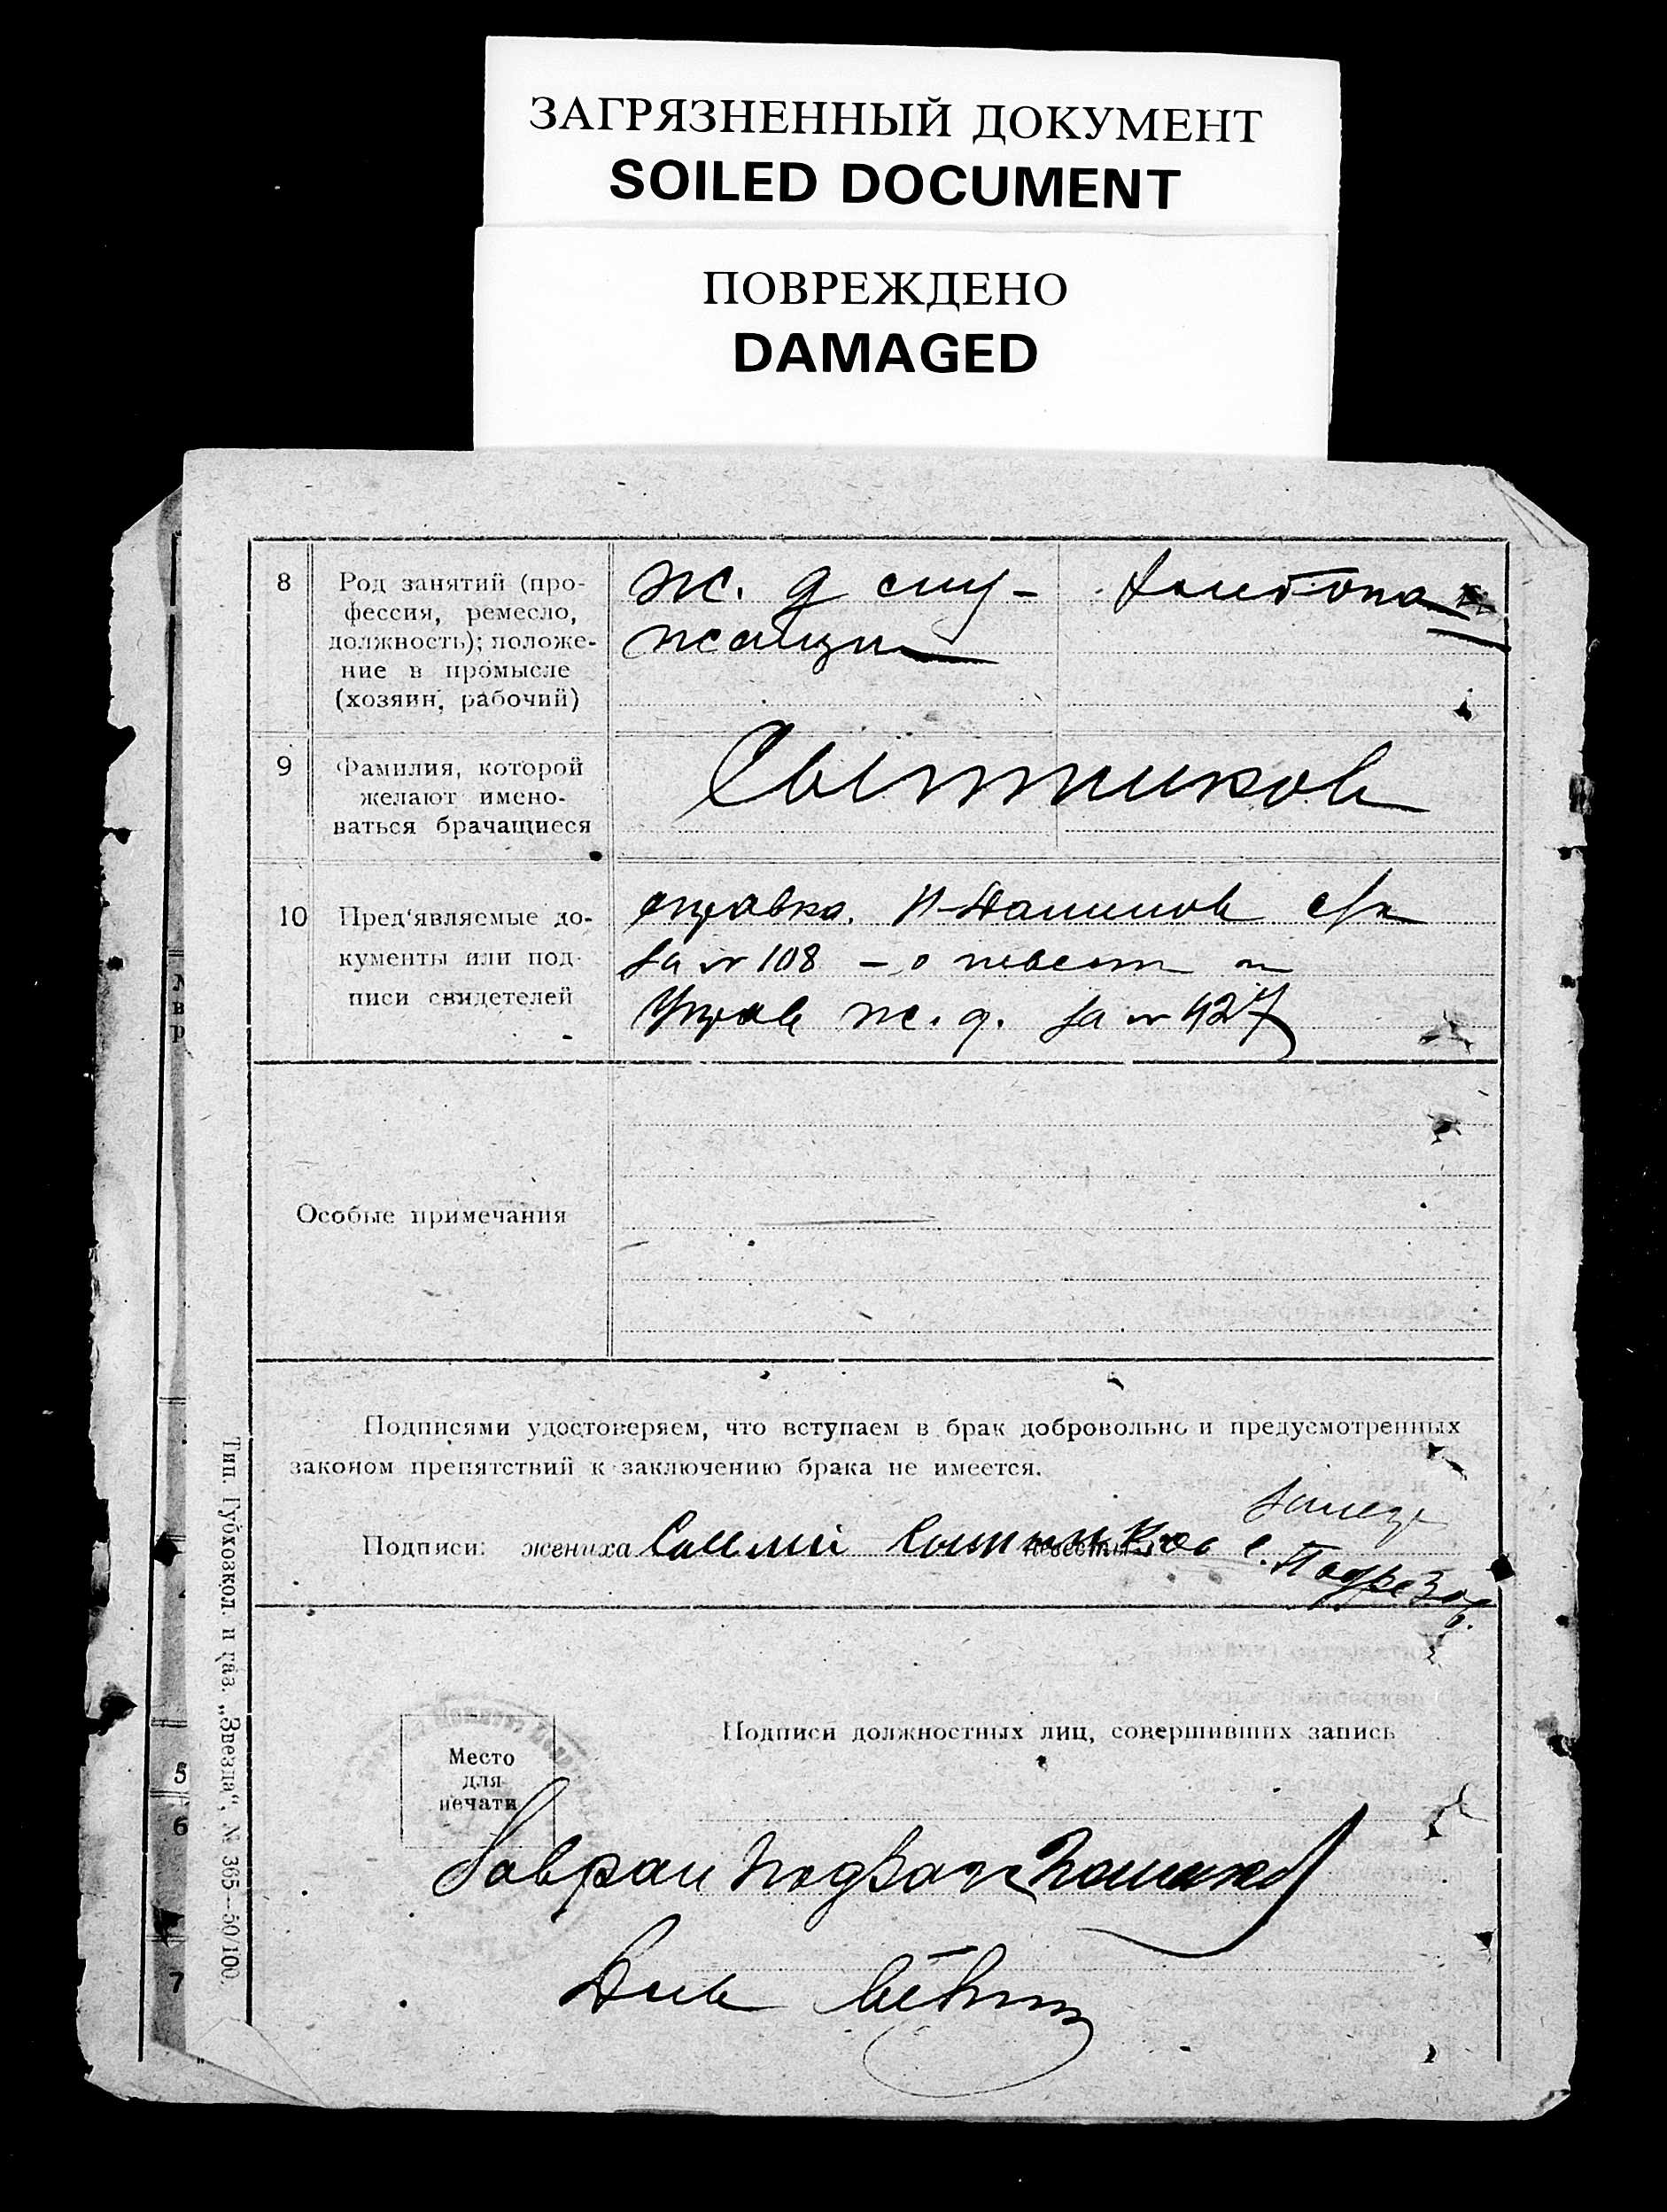 ЗАГРЯЗНЕННЫЙ ДОКУМЕНТ
SOILED DOCUMENT
ПОВРЕЖДЕНО
DAMAGED
8
Род занятий (про-
фессия, ремесло,
должность); положе-
ние в промысле
(хозяин, рабочий)
ж. д слу-
жащий
хлебопа
9
Фамилия, которой
желают имено-
ваться брачащиеся
Сытников
10
Пред'являемые до-
кументы или под-
писи свидетелей
справка с/с
за № 108 - о невест
Управ ж. д. за № 427
Особые примечания
Подписями удостоверяем, что вступаем в брак добровольно и предусмотренных
законом препятствий к заключению брака не имеется.
Подписи: жениха Сытников невесты
Подрезов
Место
для
печати
Подписи должностных лиц, совершивших запись
Завран подзагс
Дел
Тип. Губхозкол. и газ. „Звезда", № 365—50/100.
5
6
7